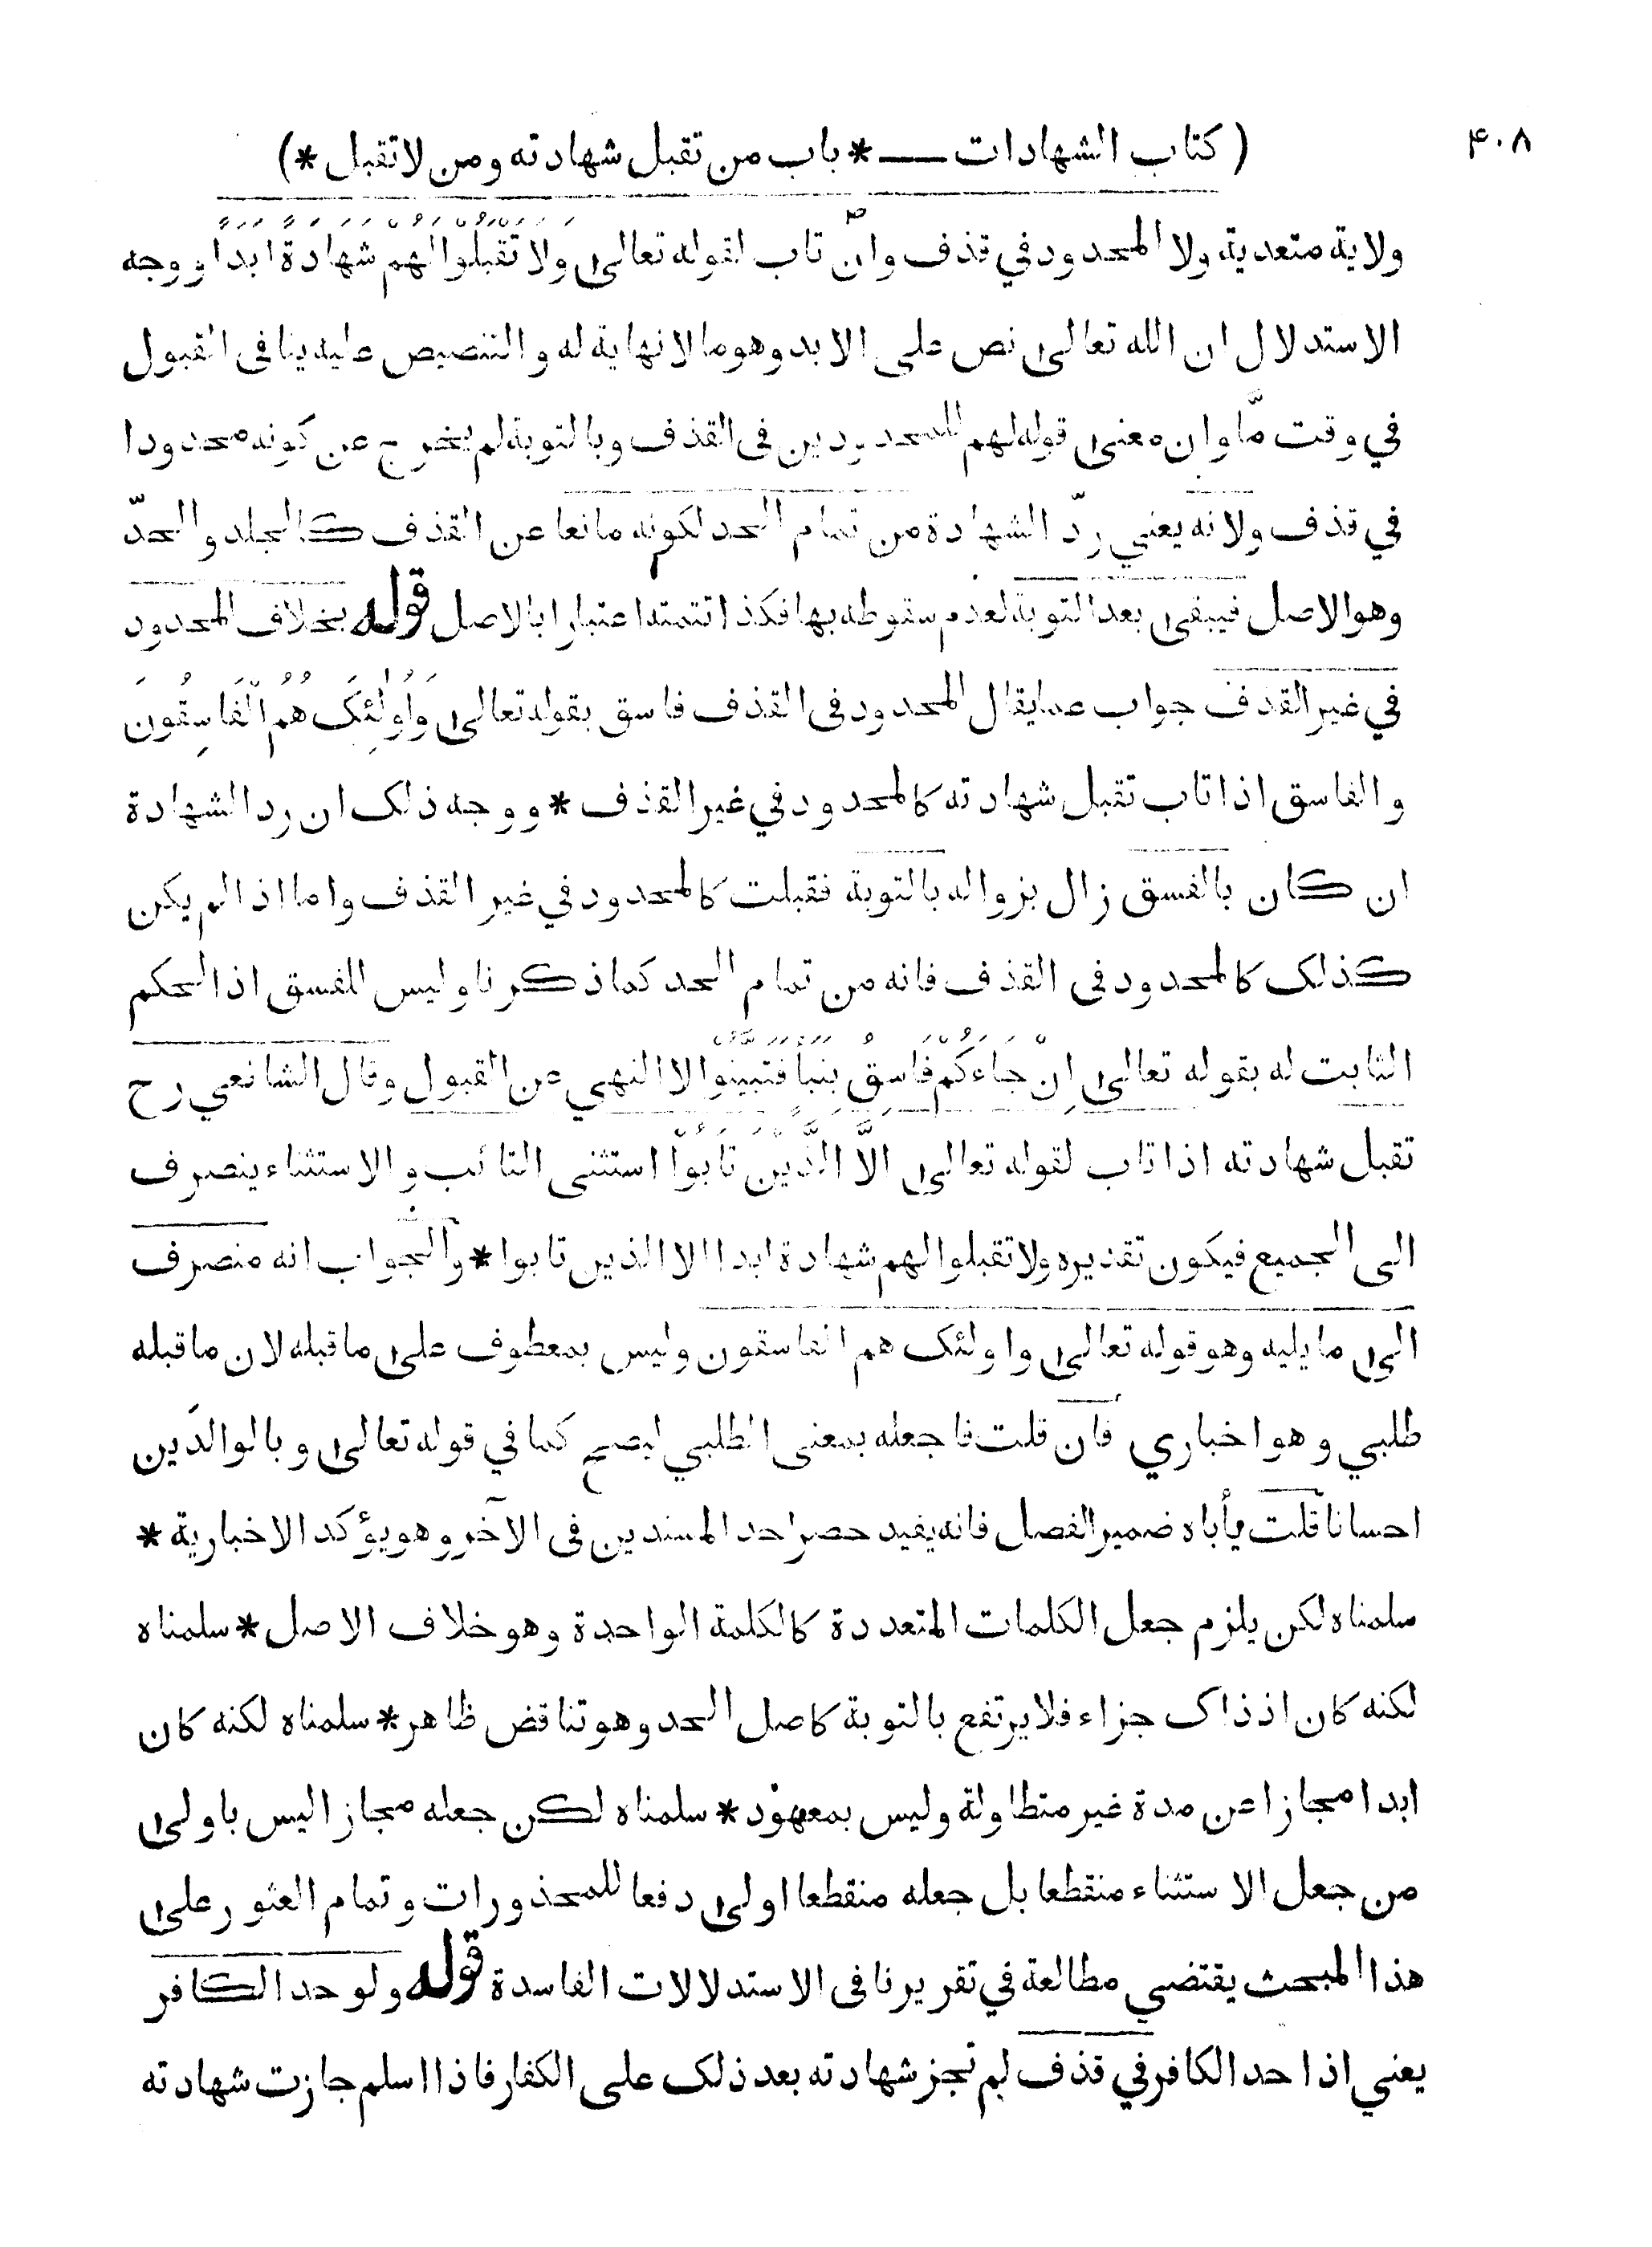 ۴۰۸
( كتاب الشهادات — * باب من تقبل شهادته ومن لا تقبل * )
ولاية متعدية ولا المحدود في قذف وان تاب لقوله تعالى وَلَا تَقْبَلُوْا لَهُمْ شَهَادَةً اَبَدًا ووجه
الاستدلال ان الله تعالى نص على الابد وهو ما لا نهاية له والتنصيص عليه ينافى القبول
في وقت مّا وان معنى قوله لهم للمحدودين فى القذف وبالتوبة لم يخرج عن كونه محدودا
في قذف ولانه يعني ردّ الشهادة من تمام الحد لكونه مانعا عن القذف كالجلد والحدّ
وهو الاصل فيبقى بعد التوبة لعدم سقوطه بها فكذا تتمته اعتبارا بالاصل قوله بخلاف المحدود
في غير القذف جواب عما يقال المحدود فى القذف فاسق بقوله تعالى وَاُولٰئِكَ هُمُ الْفَاسِقُونَ
والفاسق اذا تاب تقبل شهادته كالمحدود في غير القذف * ووجه ذلك ان رد الشهادة
ان كان بالفسق زال بزواله بالتوبة فقبلت كالمحدود في غير القذف واما اذا لم يكن
كذلك كالمحدود فى القذف فانه من تمام الحد كما ذكرنا وليس للفسق اذ الحكم
الثابت له بقوله تعالى اِنْ جَاءَكُمْ فَاسِقٌ بِنَبَأٍ فَتَبَيَّنُوْا الا النهي عن القبول وقال الشافعي رح
تقبل شهادته اذا تاب لقوله تعالى اِلَّا الَّذِيْنَ تَابُوْا استثنى التائب والاستثناء ينصرف
الى الجميع فيكون تقديره ولا تقبلوا لهم شهادة ابدا الا الذين تابوا * والجواب انه منصرف
الى ما يليه وهو قوله تعالى واولئك هم الفاسقون وليس بمعطوف على ما قبله لان ما قبله
طلبي وهو اخباري فان قلت فاجعله بمعنى الطلبي ليصح كما في قوله تعالى وبالوالدَين
احسانا قلت يأباه ضمير الفصل فانه يفيد حصر احد المسندين فى الآخر وهو يؤكد الاخبارية *
سلمناه لكن يلزم جعل الكلمات المتعددة كالكلمة الواحدة وهو خلاف الاصل * سلمناه
لكنه كان اذ ذاك جزاء فلا يرتفع بالتوبة كاصل الحد وهو تناقض ظاهر * سلمناه لكنه كان
ابدا مجازا عن مدة غير متطاولة وليس بمعهود * سلمناه لكن جعله مجازا ليس باولى
من جعل الاستثناء منقطعا بل جعله منقطعا اولى دفعا للمحذورات وتمام العثور على
هذا المبحث يقتضي مطالعة في تقريرنا فى الاستدلالات الفاسدة قوله ولو حد الكافر
يعني اذا حد الكافر في قذف لم تجز شهادته بعد ذلك على الكفار فاذا اسلم جازت شهادته